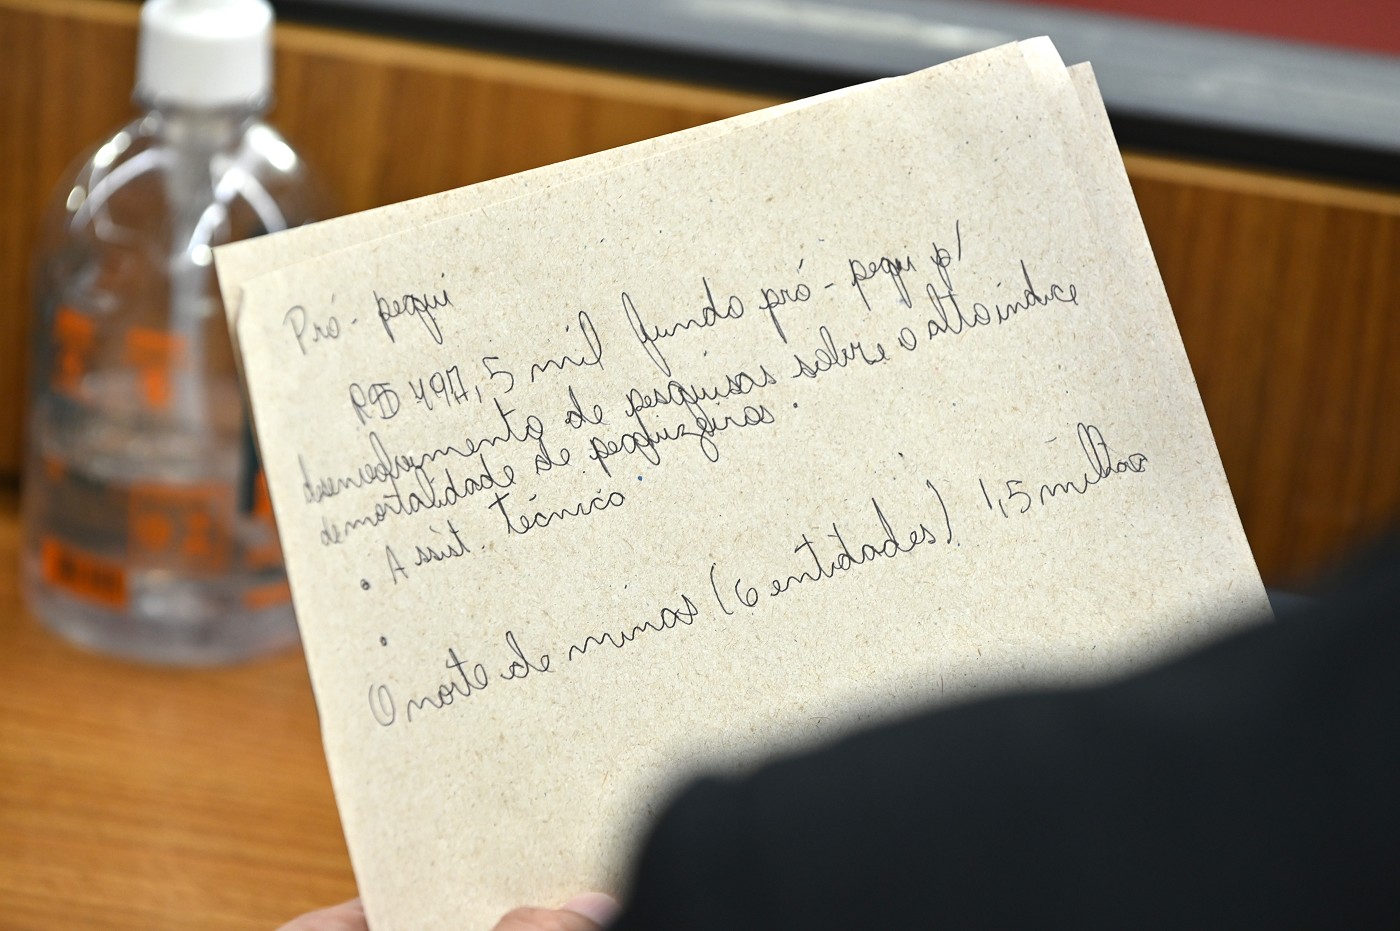 Pró-pequi
R$ 497,5 mil fundo pró-pequi p/
desenvolvimento de pesquisas sobre o alto índice
de mortalidade de pequizeiros.
• Assist. técnico
•
O norte de minas (6 entidades) 1,5 milhão